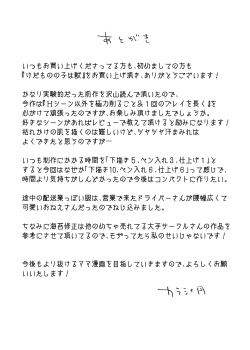 あとがき
いつもお買い上げくださってる方も、初めましての方も
『けだものの子は獣』をお買い上げ頂き、ありがとうございます！
かなり実験的だった前作を沢山読んで頂いたので、
今作は『Hシーン以外を極力削ること＆１回のプレイを長く』を
心がけて頑張ったのですが、お楽しみ頂けましたでしょうか。
好きなシーンがあればレビューで教えて頂けると励みになります！
枯れかけの肌を描くのは難しいけど、ツヤツヤ汗まみれは
よくできたと思うのですが…
いつも制作にかかる時間を「下描き５、ペン入れ３、仕上げ１」と
すると今回はなぜか「下描き10、ペン入れ６、仕上げ６」って感じで、
時間より気持がしんどかったので今後はコンパクトに作りたい。
途中の配送業っぽい服は、営業で来たドライバーさんが腰幅広くて
可愛いおねえさんだったのでねじ込みました。
ちなみに海苔修正は他のめちゃ売れてる大手サークルさんの作品を
参考にさせて頂いてるので、そだってたら私のせいじゃないです！
今後もより抜けるママ漫画を目指していきますので、よろしくお願
いいたします！